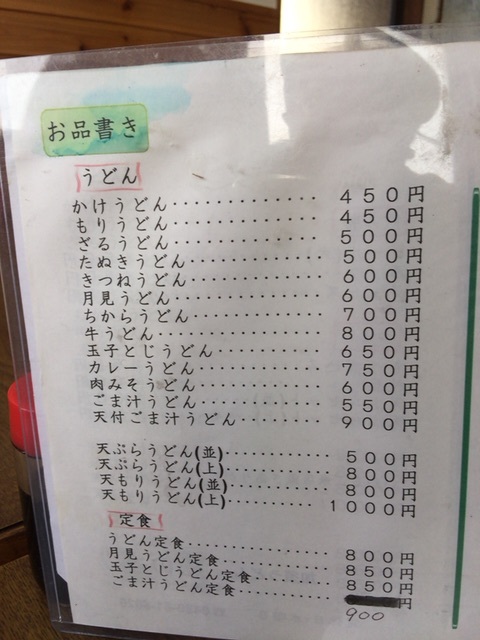 お品書き
うどん
かけうどん・・・・・・・・・・・・・・４５０円
もりうどん・・・・・・・・・・・・・・４５０円
ざるうどん・・・・・・・・・・・・・・５００円
たぬきうどん・・・・・・・・・・・・・５００円
きつねうどん・・・・・・・・・・・・・６００円
月見うどん・・・・・・・・・・・・・・６００円
ちからうどん・・・・・・・・・・・・・７００円
牛うどん・・・・・・・・・・・・・・・８００円
玉子とじうどん・・・・・・・・・・・６５０円
カレーうどん・・・・・・・・・・・・・７５０円
肉みそうどん・・・・・・・・・・・・・６００円
ごま汁うどん・・・・・・・・・・・・・５５０円
天付ごま汁うどん・・・・・・・・・９００円
天ぷらうどん(並)・・・・・・・・・・５００円
天ぷらうどん(上)・・・・・・・・・・８００円
天もりうどん(並)・・・・・・・・・・８００円
天もりうどん(上)・・・・・・・・・・１０００円
定食
うどん定食・・・・・・・・・・・・・・８００円
月見うどん定食・・・・・・・・・・・８５０円
玉子とじうどん定食・・・・・・・・８５０円
ごま汁うどん定食・・・・・・・・・・円
900